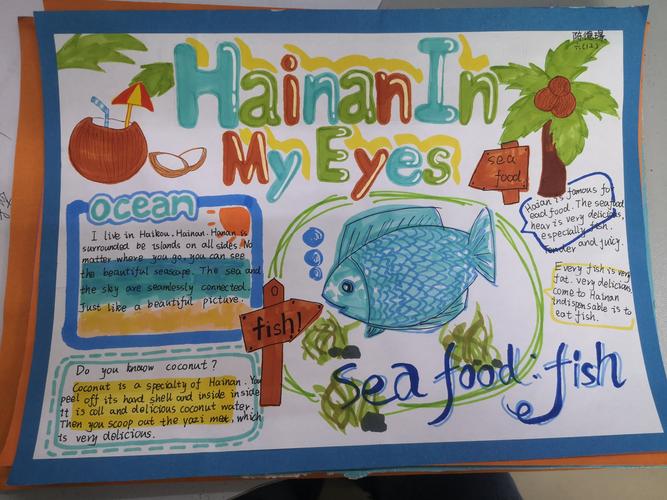 Hainan In
My Eyes
六(12)
sea
food
ocean
I live in Haikou. Hainan. Hanan is
surrounded be islands on all sides. No
matter where you go, you can see
the beautiful seascape. The sea and
the sky are seamlessly connected.
Just like a beautiful picture.
Hainan is famous for
ead food. The seafood
hear is very delicious,
especially fish.
Tender and juicy.
Every fish is very
fat. very delicious.
come to Hainan
indispensable is to
eat fish.
fish!
sea food: fish
Do you know coconut?
Coconut is a specialty of Hainan. You
peel off its hard shell and inside inside
it is coll and delicious coconut water.
Then you scoop out the yozi met, which
is very delicious.